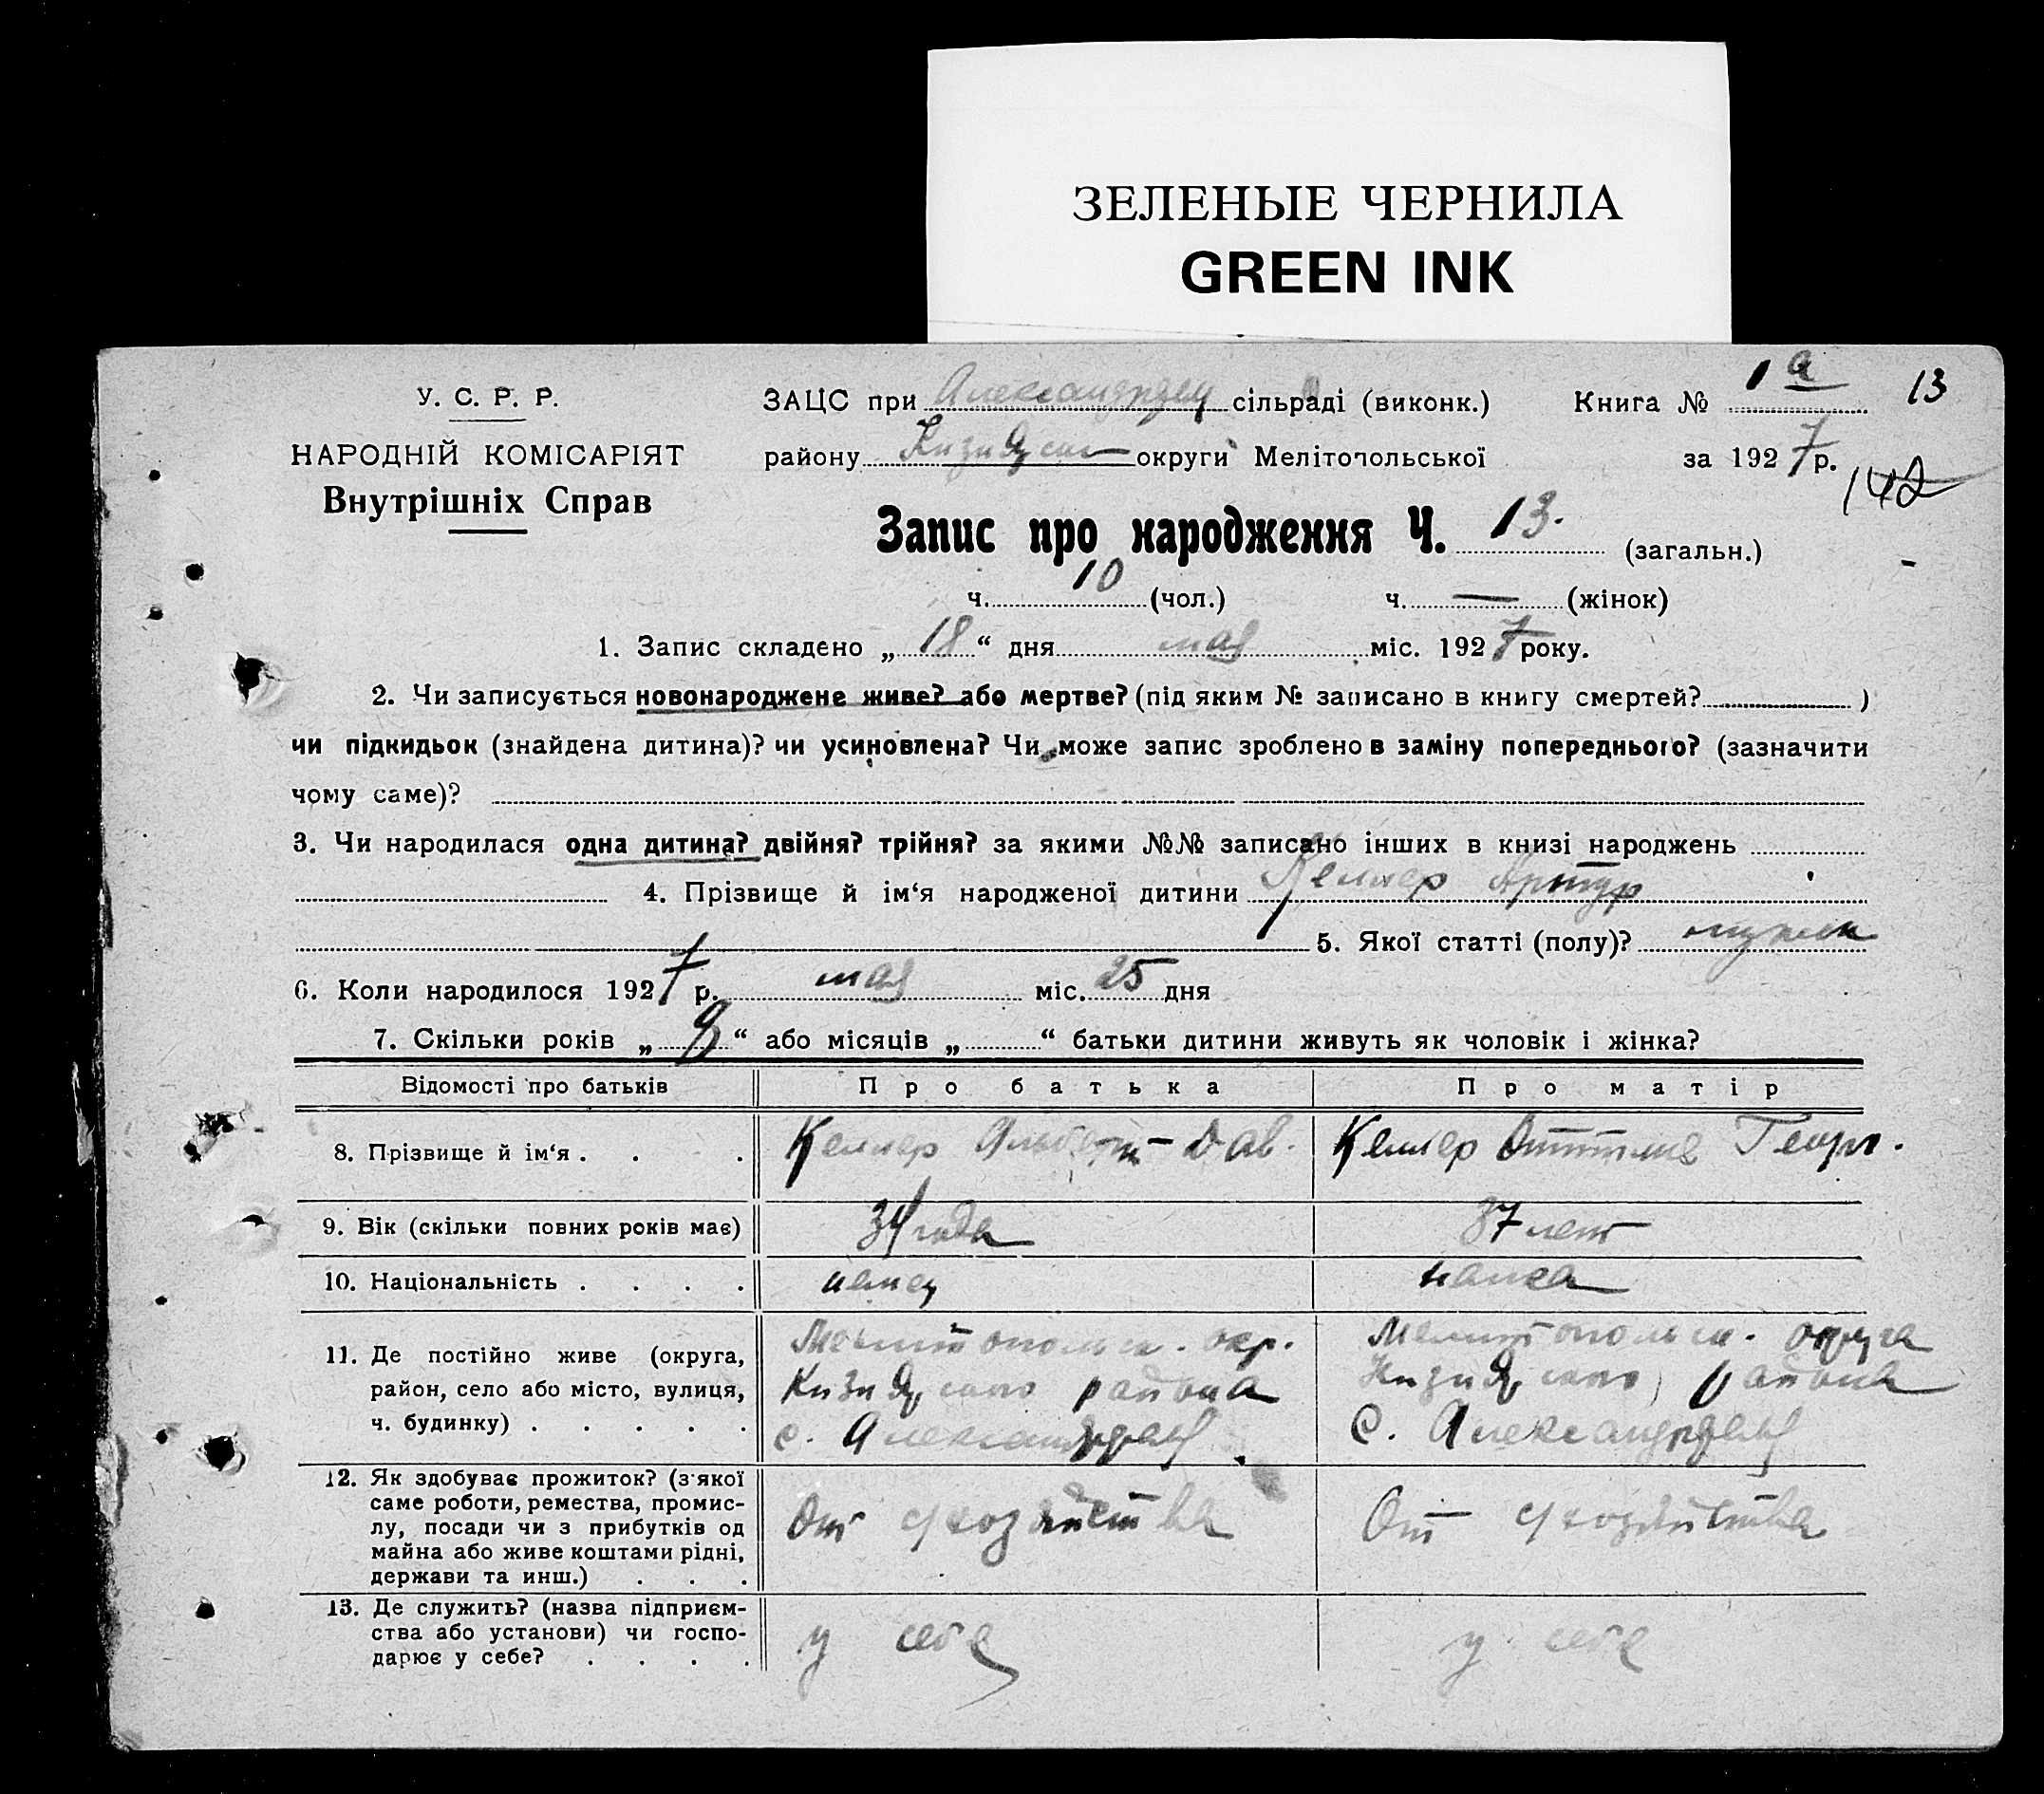 ЗЕЛЕНЫЕ ЧЕРНИЛА
GREEN INK
У. С. Р. Р.
НАРОДНІЙ КОМІСАРІЯТ
Внутрішніх Справ
ЗАЦС при сільраді (виконк.) Книга № 1а 13
району округи Мелітопольської за 1927 р.
142
Запис про народження Ч. 13. (загальн.)
ч. 10 (чол.) ч. — (жінок)
1. Запис складено „18“ дня мая міс. 1927 року.
2. Чи записується новонароджене живе? або мертве? (під яким № записано в книгу смертей? )
чи підкидьок (знайдена дитина)? чи усиновлена? Чи може запис зроблено в заміну попереднього? (зазначити
чому саме)?
3. Чи народилася одна дитина? двійня? трійня? за якими №№ записано інших в книзі народжень
4. Прізвище й ім‘я народженої дитини Келлер Артур
5. Якої статті (полу)? мужск
6. Коли народилося 1927 р. мая міс. 25 дня
7. Скільки років „8“ або місяців „ “ батьки дитини живуть як чоловік і жінка?
Відомості про батьків Про батька Про матір
8. Прізвище й ім‘я . . . Келлер Альберт Дав. Келлер Георг.
9. Вік (скільки повних років має) 34 года 37 лет
10. Національність . . . . немец немка
11. Де постійно живе (округа,
район, село або місто, вулиця,
ч. будинку) . . . . .
Мелитопольск. окр.
района
с.
Мелитопольск. округа
района
с.
12. Як здобуває прожиток? (з якої
саме роботи, ремества, промис-
лу, посади чи з прибутків од
майна або живе коштами рідні,
держави та инш.) . . .
От с/хозяйства
От с/хозяйства
13. Де служить? (назва підприєм-
ства або установи) чи госпо-
дарює у себе? . . . .
у себе
у себе